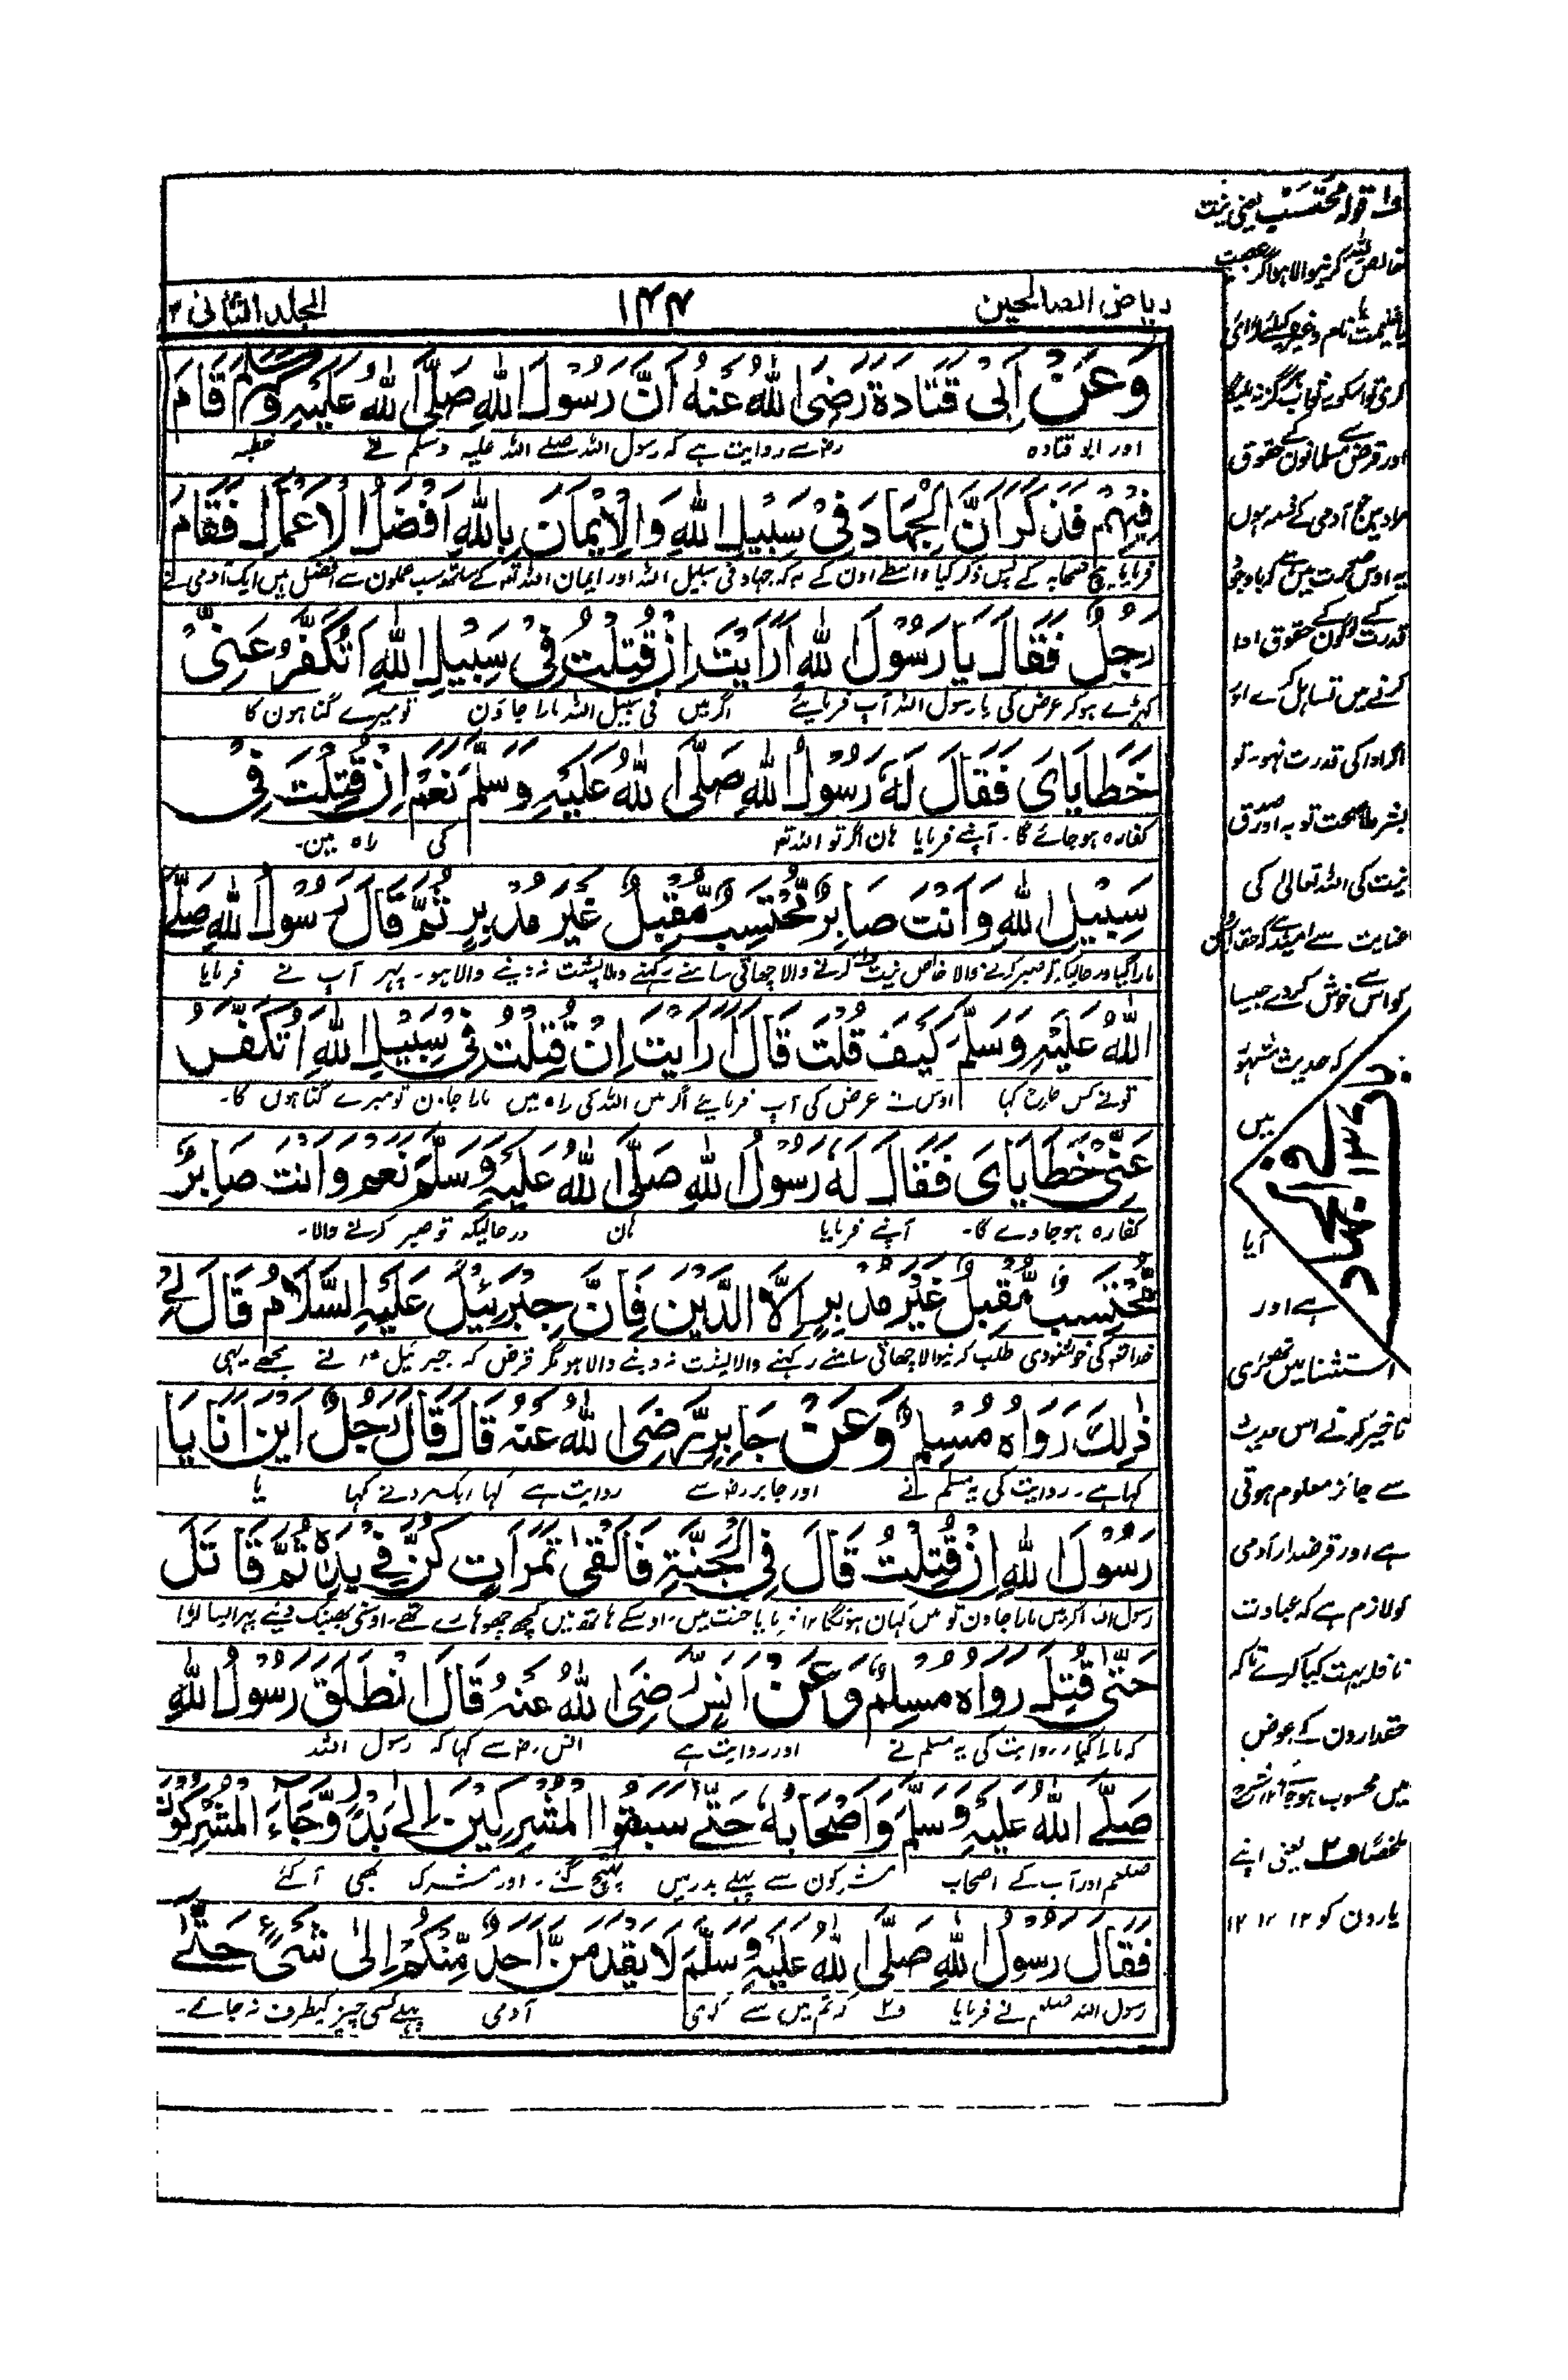 ریاض الصالحین
۱۴۴
المجلد الثانی
وَعَنْ اَبِیْ قَتَادَةَ رَضِیَ اللّٰهُ عَنْهُ اَنَّ رَسُوْلَ اللّٰهِ صَلَّی اللّٰهُ عَلَیْهِ وَسَلَّمَ قَامَ
اور ابو قتادہ رضسے روایت ہے کہ رسول اللہ صلے اللہ علیہ وسلم نے خطبہ
فِیْهِمْ فَذَكَرَ اَنَّ الْجِهَادَ فِیْ سَبِیْلِ اللّٰهِ وَالْاِیْمَانَ بِاللّٰهِ اَفْضَلُ الْاَعْمَالِ فَقَامَ
فرمایا بیچ صحابہ کے پس ذکر کیا واسطے اون کے کہ جہاد فی سبیل اللہ اور ایمان اللہ تعہ کے ساتھ سب عملون سے افضل ہیں ایک آدمی نے
رَجُلٌ فَقَالَ یَا رَسُوْلَ اللّٰهِ اَرَاَیْتَ اِنْ قُتِلْتُ فِیْ سَبِیْلِ اللّٰهِ اَتُكَفَّرُ عَنِّیْ
کہڑے ہوکر عرض کی یا رسول اللہ آپ فرمایئے اگر میں فی سبیل اللہ مارا جاؤن تو میرے گناہون کا
خَطَایَایَ فَقَالَ لَهٗ رَسُوْلُ اللّٰهِ صَلَّی اللّٰهُ عَلَیْهِ وَسَلَّمَ نَعَمْ اِنْ قُتِلْتَ فِیْ
کفارہ ہوجائے گا۔ آپنے فرمایا ہان اگر تو اللہ تعہ کی راہ میں۔
سَبِیْلِ اللّٰهِ وَاَنْتَ صَابِرٌ مُّحْتَسِبٌ مُّقْبِلٌ غَیْرَ مُدْبِرٍ ثُمَّ قَالَ رَسُوْلُ اللّٰهِ صَلَّی
مارا گیا درحالیکہ تو صبر کرنے والا خالص نیت کرنے والا چھاتی سامنے رکہنے والا پشت نہ دینے والا ہو۔ پہر آپ نے فرمایا
اللّٰهُ عَلَیْهِ وَسَلَّمَ كَیْفَ قُلْتَ قَالَ اَرَاَیْتَ اِنْ قُتِلْتُ فِیْ سَبِیْلِ اللّٰهِ اَتُكَفَّرُ
تونے کس طرح کہا اوس نے عرض کی آپ فرمایئے اگر میں اللہ کی راہ میں مارا جاؤن تو میرے گناہوں کا۔
عَنِّیْ خَطَایَایَ فَقَالَ لَهٗ رَسُوْلُ اللّٰهِ صَلَّی اللّٰهُ عَلَیْهِ وَسَلَّمَ نَعَمْ وَاَنْتَ صَابِرٌ
کفارہ ہوجاوے گا۔ آپنے فرمایا ہان درحالیکہ تو صبر کرنے والا۔
مُّحْتَسِبٌ مُّقْبِلٌ غَیْرَ مُدْبِرٍ اِلَّا الدَّیْنَ فَاِنَّ جِبْرَئِیْلَ عَلَیْهِ السَّلَامُ قَالَ لِیْ
خدا تعہ کی خوشنودی طلب کرنیوالا چھاتی سامنے رکہنے والا پشت نہ دینے والا ہو مگر قرض کہ جبرئیل نے مجھے یہی
ذٰلِكَ رَوَاهُ مُسْلِمٌ وَعَنْ جَابِرٍ رَّضِیَ اللّٰهُ عَنْهُ قَالَ قَالَ رَجُلٌ اَیْنَ اَنَا یَا
کہا ہے۔ روایت کی یہ مسلم نے اور جابر رضسے روایت ہے کہا ایک مرد نے کہا یا
رَسُوْلَ اللّٰهِ اِنْ قُتِلْتُ قَالَ فِی الْجَنَّةِ فَاَلْقٰی تَمَرَاتٍ كُنَّ فِیْ یَدِهٖ ثُمَّ قَاتَلَ
رسول اللہ اگر میں مارا جاون تو میں کہان ہونگا فرمایا جنت میں۔ اوسکے ہاتھ میں کچھ چھوہارے تھے۔ اوسنی پھینک دینے پہر ایسا لڑا
حَتّٰی قُتِلَ رَوَاهُ مُسْلِمٌ وَعَنْ اَنَسٍ رَّضِیَ اللّٰهُ عَنْهُ قَالَ انْطَلَقَ رَسُوْلُ اللّٰهِ
کہ مارا گیا۔ روایت کی یہ مسلم نے اور روایت ہے انس رضسے کہا کہ رسول اللہ
صَلَّی اللّٰهُ عَلَیْهِ وَسَلَّمَ وَاَصْحَابُهٗ حَتّٰی سَبَقُوا الْمُشْرِكِیْنَ اِلٰی بَدْرٍ وَّجَآءَ الْمُشْرِكُوْنَ
صلعم اور آپ کے اصحاب مشرکون سے پہلے بدر میں پہنچ گئے۔ اور مشرک بھی آگئے
فَقَالَ رَسُوْلُ اللّٰهِ صَلَّی اللّٰهُ عَلَیْهِ وَسَلَّمَ لَا یَقْدَمَنَّ اَحَدٌ مِّنْكُمْ اِلٰی شَیْءٍ حَتّٰی
رسول اللہ صلعم نے فرمایا ف۲ کہ تم میں سے کوئی آدمی پہلے کسی چیز کیطرف نہ جائے۔
ف۱ قولہ مُحْتَسِبٌ یعنی نیت
خالص للہ کرنیوالا ہو اگر
یا غنیمت یا نام وغیرہ کیلئے لڑائی
کری تو اسکو یہ ثواب ہرگز نہ ملیگا
اور قرض سے مسلمانون کے حقوق
مراد ہیں جو آدمی کے ذمہ ہوں
یہ اوس صورت میں ہے کہ باوجود
قدرت کے لوگون کے حقوق ادا
کرنے میں تساہل کرے اور
اگر ادا کی قدرت نہو۔ تو
بشرط صحت توبہ اور صدق
نیت کی اللہ تعالیٰ کی
عنایت سے امید ہے کہ
کو اس سے خوش کردے جیسا
کہ حدیث
میں
آیا
ہے اور
استثنا میں تھوڑی
تاخیر کرنے اس حدیث
سے جائز معلوم ہوتی
ہے اور قرضدار آدمی
کو لازم ہے کہ عبادت
نافلہ بہت کیا کرے تاکہ
حقدارون کے عوض
میں محسوب ہوجائے
ملخصًا ف۲ یعنی اپنے
یارون کو ۱۲ ۱۲ ۱۲